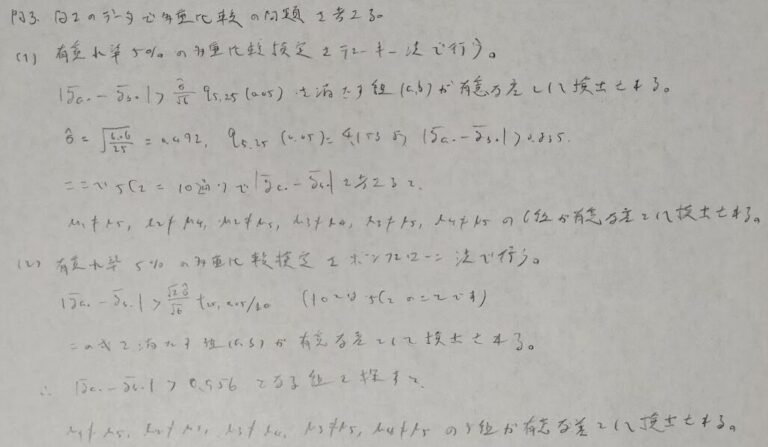 問3. 問2のデータで多重比較の問題を考える。
(1) 有意水準5%の多重比較検定をテューキー法で行う。
|ȳa. - ȳb.| > σ̂/√6 q5,25 (0.05) を満たす組(a,b)が有意な差として検出される。
σ̂ = √(6.06/25) = 0.492, q5,25 (0.05) = 4.153 より |ȳa. - ȳb.| > 0.835.
ここで 5C2 = 10通りで |ȳa. - ȳb.| を考えると、
μ1≠μ5, μ2≠μ4, μ2≠μ5, μ3≠μ4, μ3≠μ5, μ4≠μ5 の6組が有意な差として検出される。
(2) 有意水準5%の多重比較検定をボンフェローニ法で行う。
|ȳa. - ȳb.| > √2σ̂/√6 t25, 0.05/20 (10とは 5C2 のことです)
この式を満たす組(a,b)が有意な差として検出される。
∴ |ȳa. - ȳb.| > となる組を探すと、
μ1≠μ5, μ3≠μ4, μ3≠μ5, μ4≠μ5 の5組が有意な差として検出される。